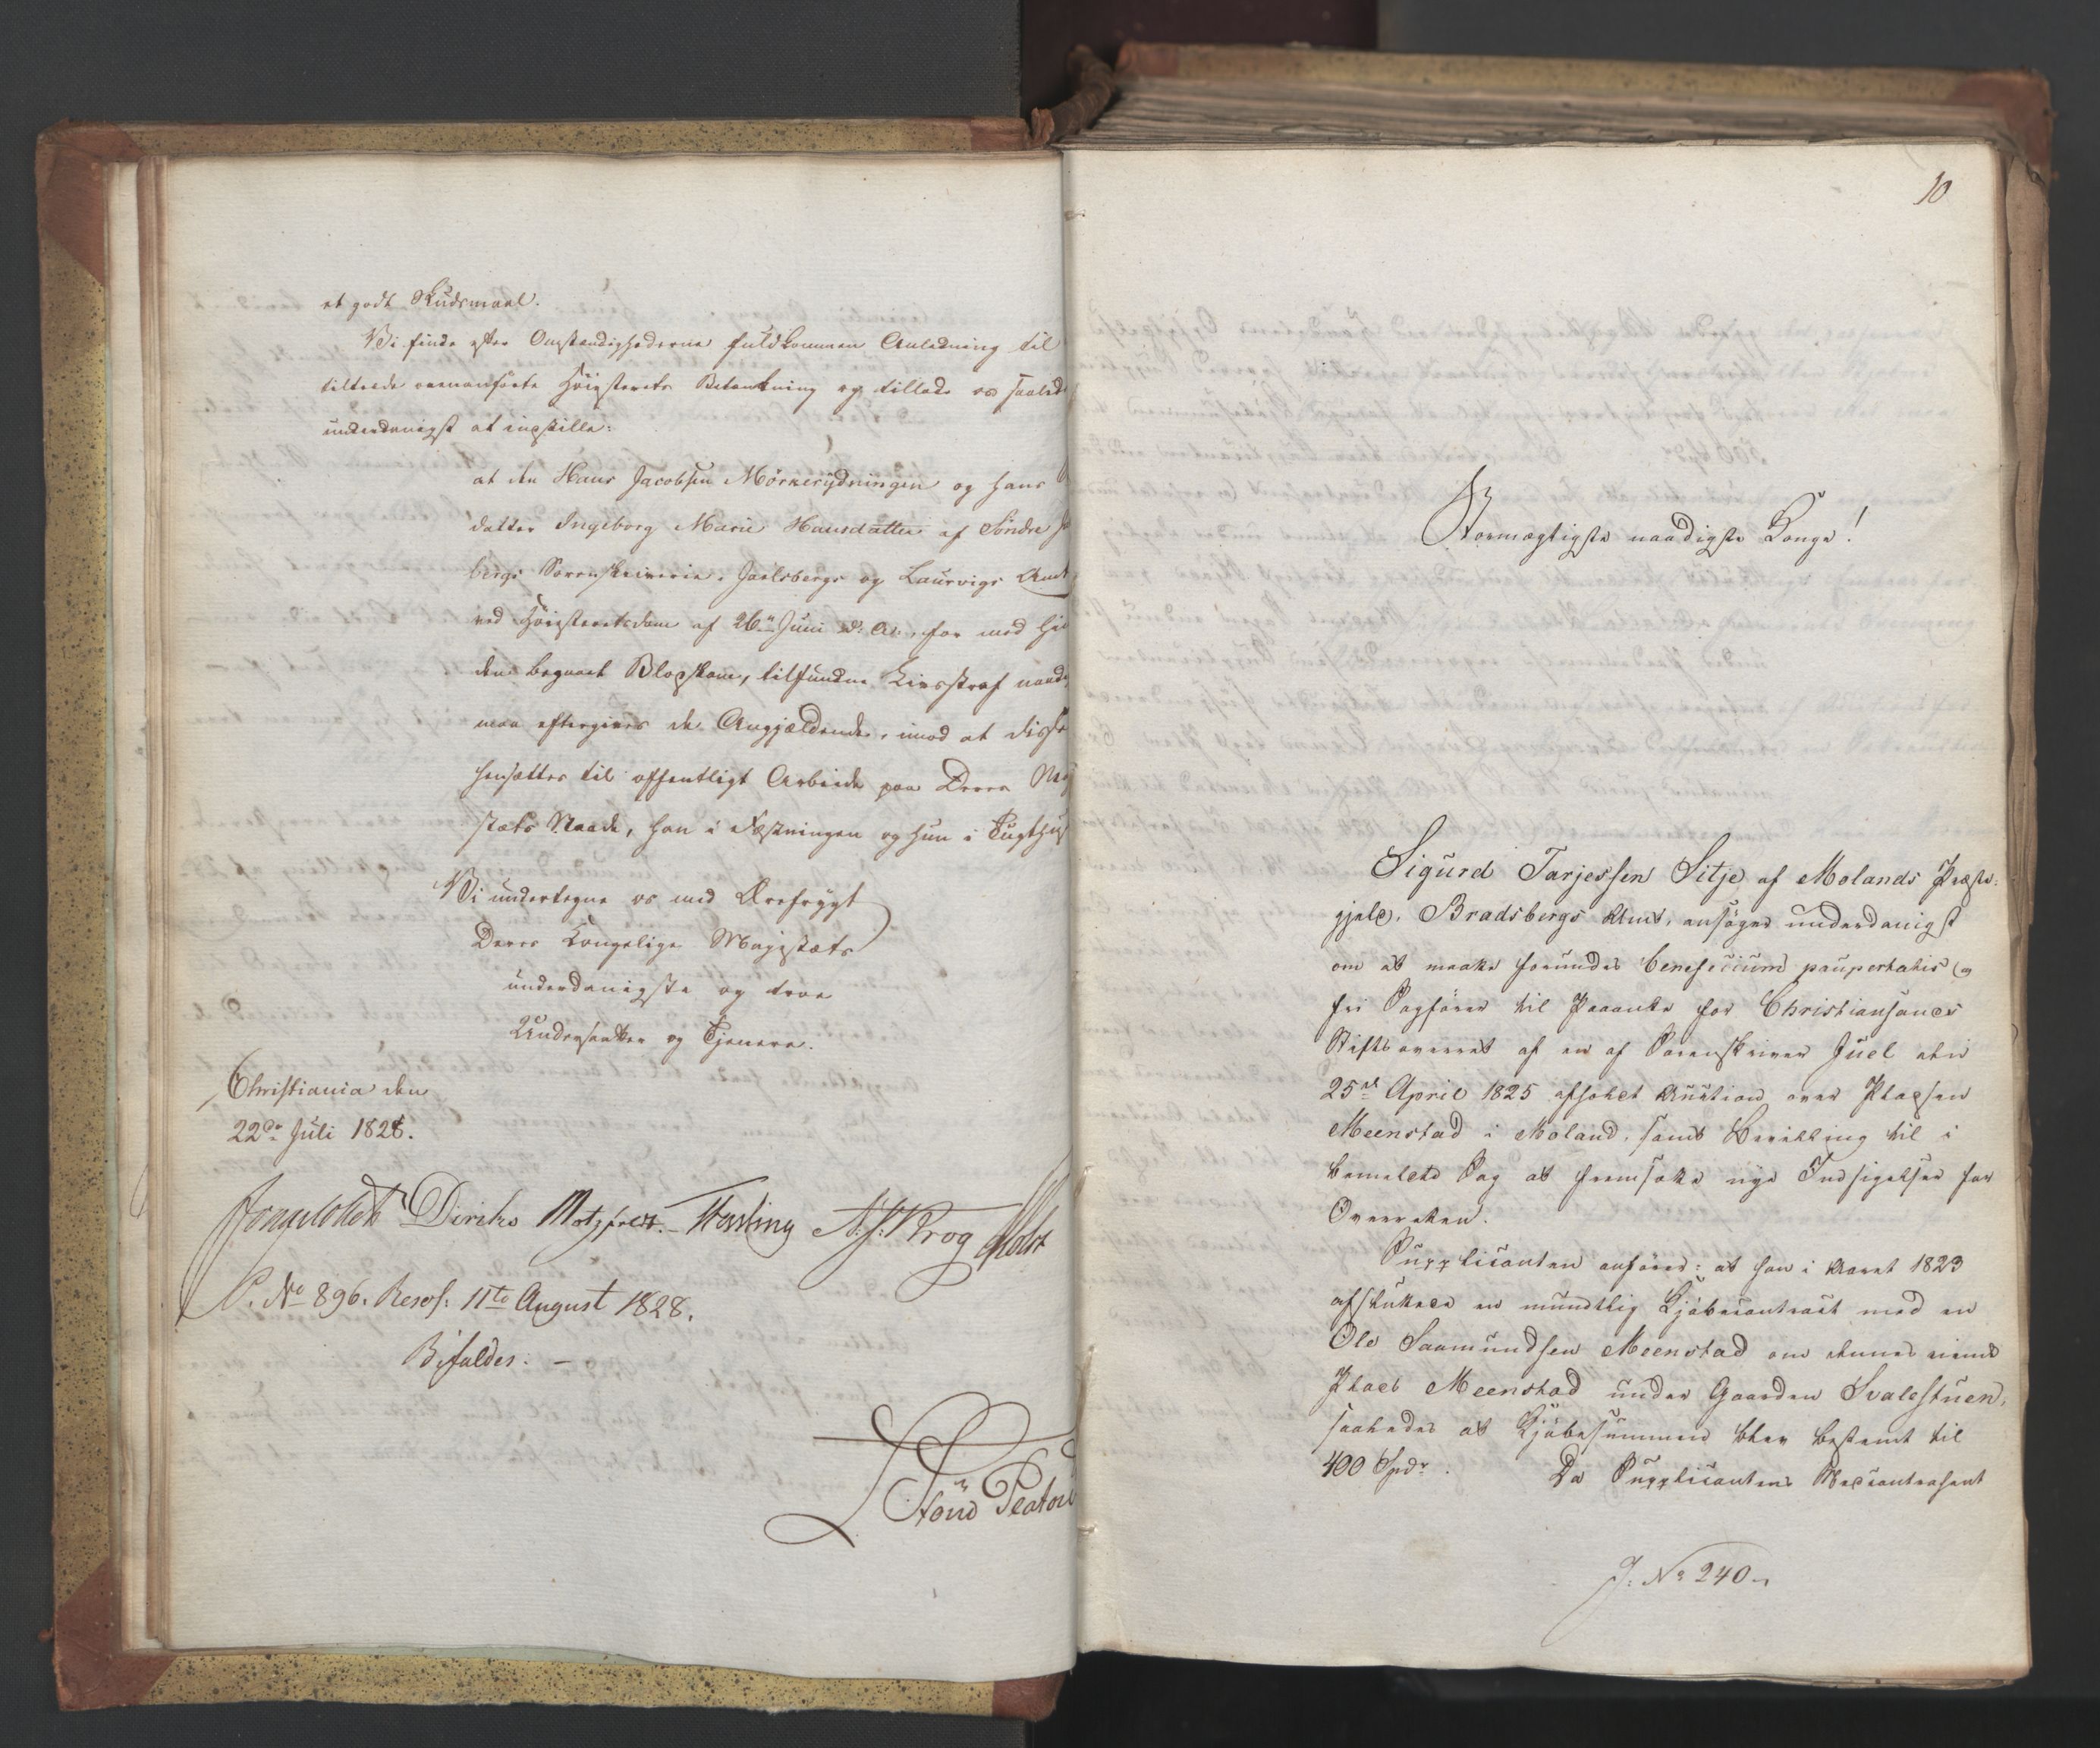 et godt Skudsmaal.
Vi finde efter Omstændighederne fuldkommen Anledning til
tiltræde ovenanførte Höiesterets Betænkning og tillade os saaled
underdanigst at indstille:
at den Hans Jacobsen Mörkerydningen og hans
datter Ingeborg Marie Hansdatter af Söndre
bergs Sorenskriverie, Jarlsbergs og Laurvigs Amt
ved Höiesteretsdom af 26de Juni d: A:, for med hi
den begaaet Blodskam, tilfundne Livsstraf naad
maa eftergives de Angjældende, imod at disse
hensættes til offentligt Arbeide paa Deres Maj
stæts Naade, han i Fæstningen og hun i Tugthus
Vi undertegne os med Ærefrygt
Deres Kongelige Majestæts
underdanigste og troe
Undersaatter og Tjenere.
Christiania den
22de Juli 1828.
Diriks Motzfeldt. Fasting A. J: Krog Holst
P. No 896. Resol: 11te August 1828.
Bifaldes. –
10
Stormægtigste naadigste Konge!
Sigurd Tarjessen Sitje af Molands Præste-
gjeld, Bradsbergs Amt, ansöger underdanigst
om at maatte forundes beneficium paupertatis og
fri Sagförer til Paaanke for Christiansands
Stiftsoverret af en af Sorenskriver Juel den
25de April 1825 afholdt Auction over Pladsen
Meenstad i Moland, samt Bevilling til i
bemeldte Sag at fremsætte nye Indsigelser for
Overretten.
Supplicanten anförer: at han i Aaret 1823
afsluttede en mundtlig Kjöbecontract med en
Ole Saamundsen Meenstad om dennes eiende
Plads Meenstad under Gaarden Svalestuen,
saaledes at Kjöbesummen blev bestemt til
400 Spdr. Da Supplicantens Medcontrahent
J: No 240.